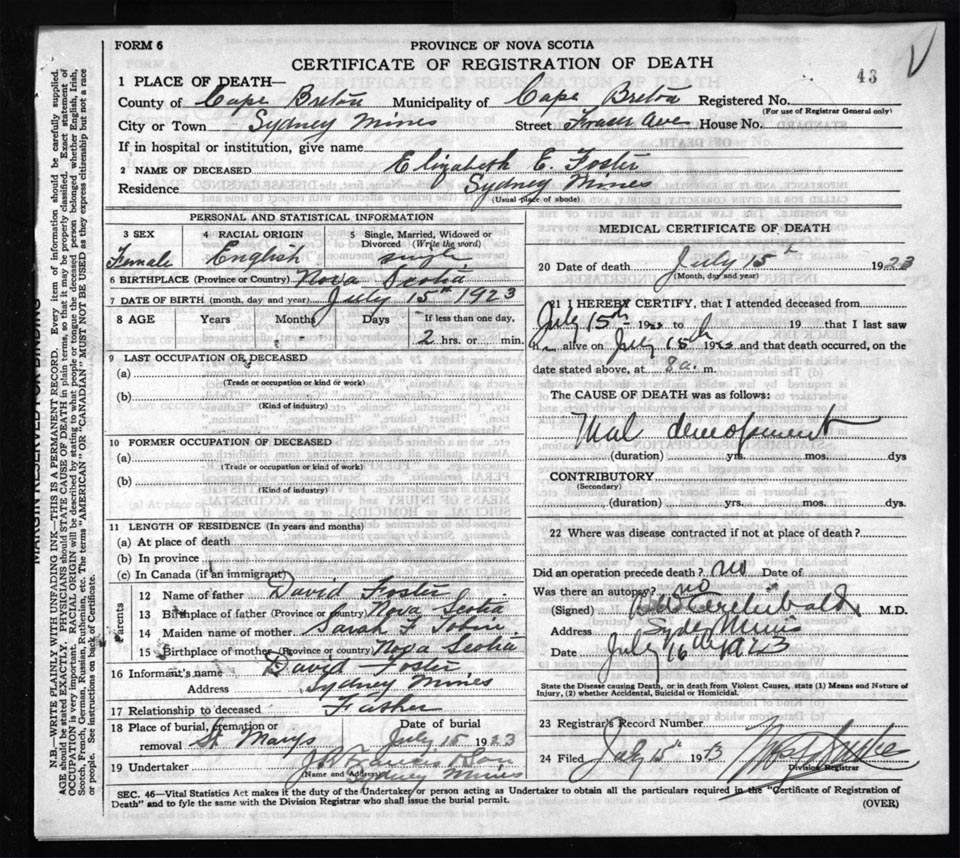 FORM 6
PROVINCE OF NOVA SCOTIA
CERTIFICATE OF REGISTRATION OF DEATH
43
1 PLACE OF DEATH—
County of Cape Breton Municipality of Cape Breton Registered No.
(For use of Registrar General only)
City or Town Sydney Mines Street Fraser Ave House No.
If in hospital or institution, give name
2 NAME OF DECEASED Elizabeth E. Foster
Residence Sydney Mines
(Usual place of abode)
PERSONAL AND STATISTICAL INFORMATION
3 SEX 4 RACIAL ORIGIN 5 Single, Married, Widowed or Divorced (Write the word)
Female English single
6 BIRTHPLACE (Province or Country) Nova Scotia
7 DATE OF BIRTH (month, day and year) July 15th 1923
8 AGE Years Months Days If less than one day,
2 hrs. or min.
9 LAST OCCUPATION OF DECEASED
(a)
(Trade or occupation or kind or work)
(b)
(Kind of industry)
10 FORMER OCCUPATION OF DECEASED
(a)
(Trade or occupation or kind or work)
(b)
(Kind of industry)
11 LENGTH OF RESIDENCE (In years and months)
(a) At place of death
(b) In province
(c) In Canada (if an immigrant)
Parents
12 Name of father David Foster
13 Birthplace of father (Province or Country) Nova Scotia
14 Maiden name of mother Sarah
15 Birthplace of mother (Province or country) Nova Scotia
16 Informant's name David Foster
Address Sydney Mines
17 Relationship to deceased Father
18 Place of burial, cremation or removal St Marys Date of burial July 15 1923
19 Undertaker & Son
(Name and Address) Sydney Mines
MEDICAL CERTIFICATE OF DEATH
20 Date of death July 15th 1923
(Month, day and year)
21 I HEREBY CERTIFY, that I attended deceased from
July 15th 1923 to 19 that I last saw
alive on July 15th 1923 and that death occurred, on the
date stated above, at 8 a. m.
The CAUSE OF DEATH was as follows:
Mal development
(duration) yrs. mos. dys
CONTRIBUTORY
(Secondary)
(duration) yrs. mos. dys.
22 Where was disease contracted if not at place of death?
Did an operation precede death? no Date of
Was there an autopsy? no
(Signed) Archibald M.D.
Address Syd Mines
Date July 16th 1923
State the Disease causing Death, or in death from Violent Causes, state (1) Means and Nature of Injury, (2) whether Accidental, Suicidal or Homicidal.
23 Registrar's Record Number
24 Filed July 15th 1923
Division Registrar
SEC. 46—Vital Statistics Act makes it the duty of the Undertaker or person acting as Undertaker to obtain all the particulars required in the "Certificate of Registration of
Death" and to fyle the same with the Division Registrar who shall issue the burial permit.
(OVER)
MARGIN RESERVED FOR BINDING
N.B.—WRITE PLAINLY WITH UNFADING INK—THIS IS A PERMANENT RECORD. Every item of information should be carefully supplied.
AGE should be stated EXACTLY. PHYSICIANS should STATE CAUSE OF DEATH in plain terms, so that it may be properly classified. Exact statement of
OCCUPATION is very important. RACIAL ORIGIN will be described by stating to what people or tongue the deceased person belonged whether English, Irish,
Scotch, French, German, Russian, Ruthenian, etc. The terms "AMERICAN" OR "CANADIAN" MUST NOT BE USED as they express citizenship but not a race
or people. See instructions on back of Certificate.